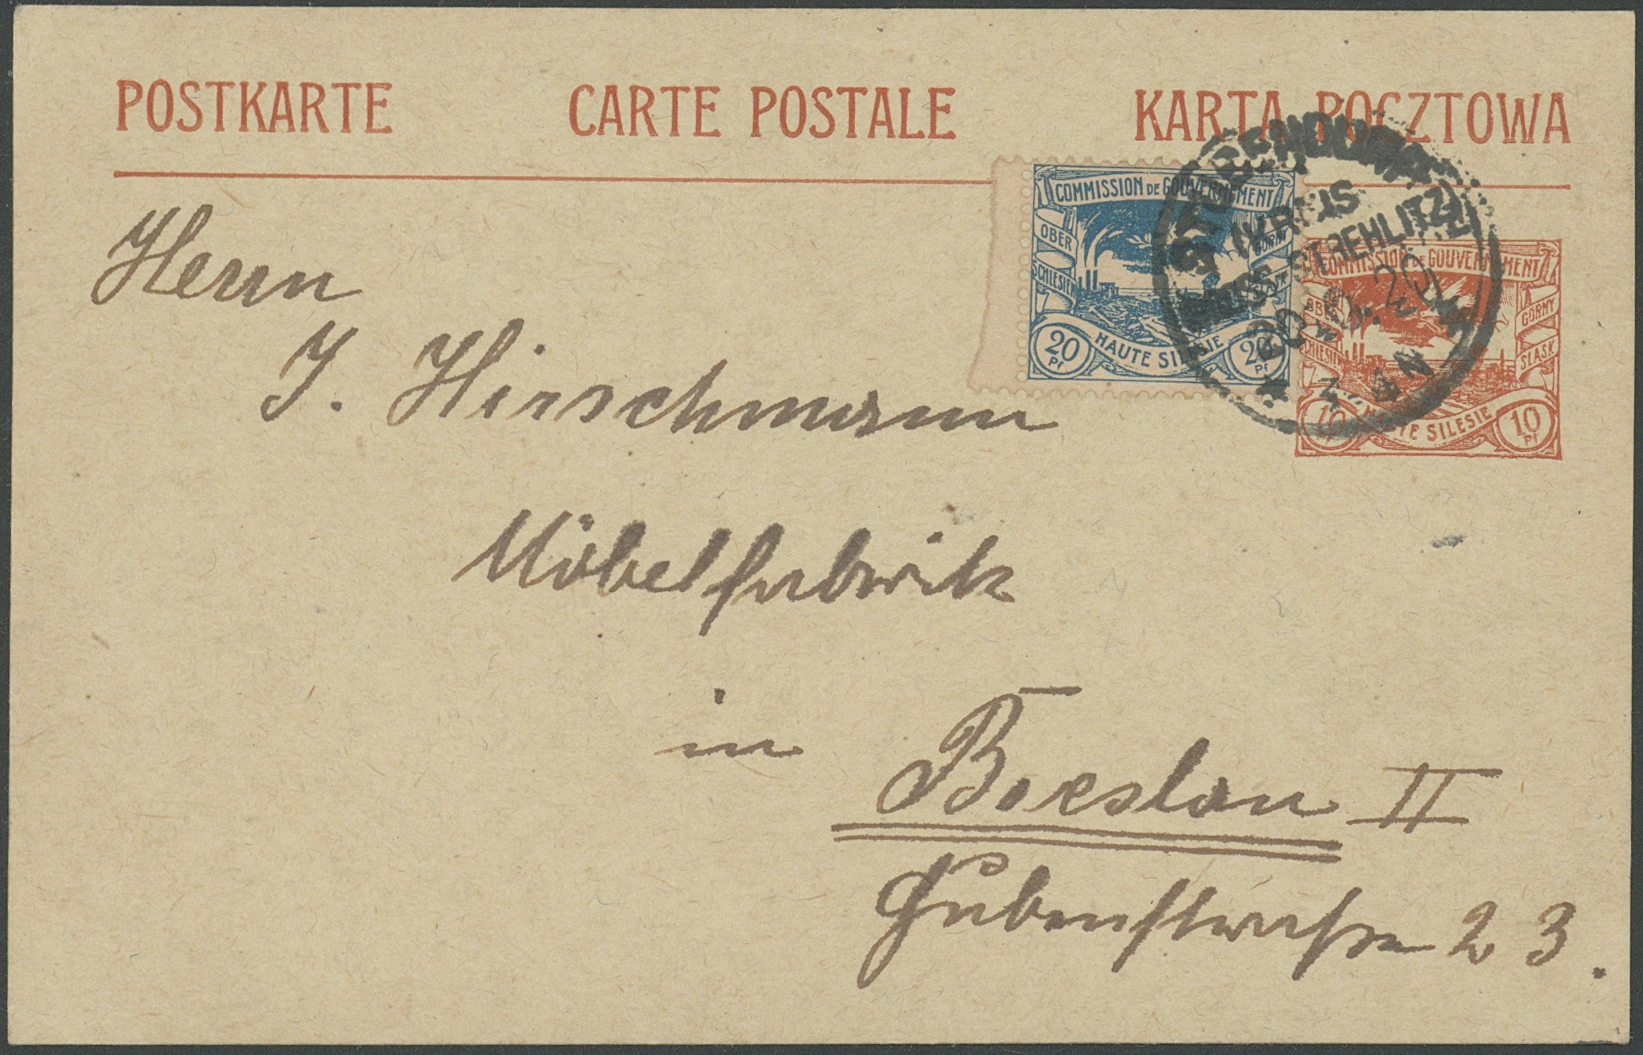 POSTKARTE CARTE POSTALE KARTA POCZTOWA
COMMISSION DE GOUVERNEMENT
OBER SCHLESIEN
GORNY
20 Pf
HAUTE SILESIE
20 Pf
STUBENDORF
(KREIS
GROSS-STREHLITZ)
20
3-4N
COMMISSION DE GOUVERNMENT
OBER SCHLESIEN
GORNY SLASK
10
HAUTE SILESIE
10 Pf
Herrn
J. Hirschmann
Möbelfabrik
in Breslau II
23.